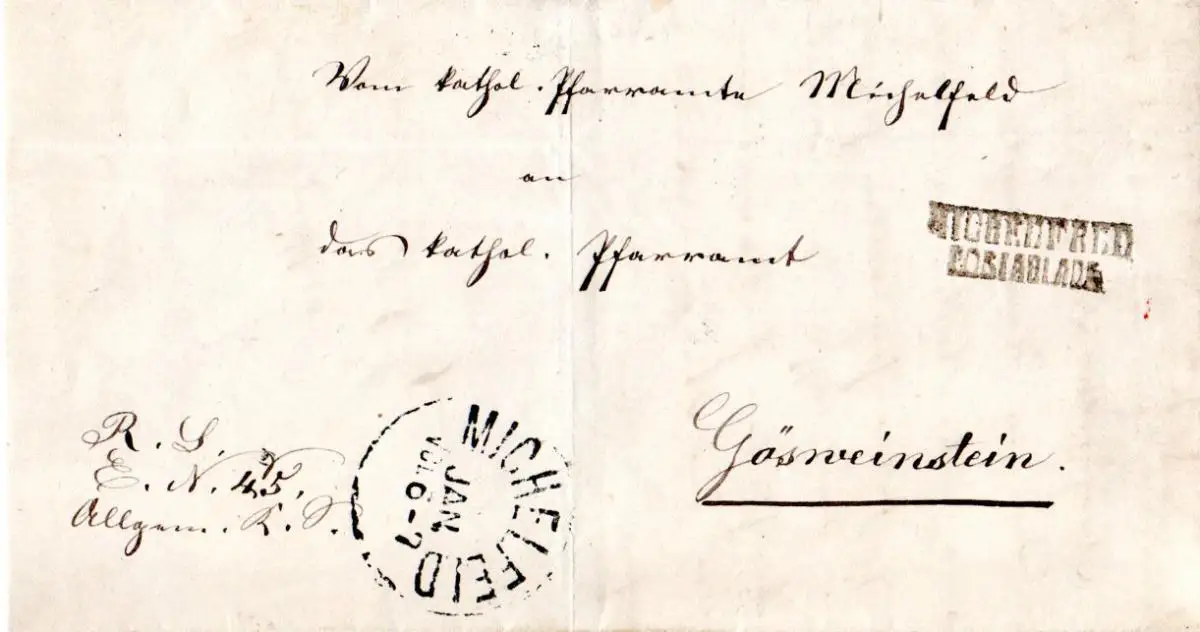 Vom kathol. Pfarramte Michelfeld
an
das kathol. Pfarramt
MICHELFELD
POSTABLAGE
Gösweinstein.
R. S.
E. N. 45.
Allgem. K. S.
MICHELFELD
JAN
VOR. 6-7